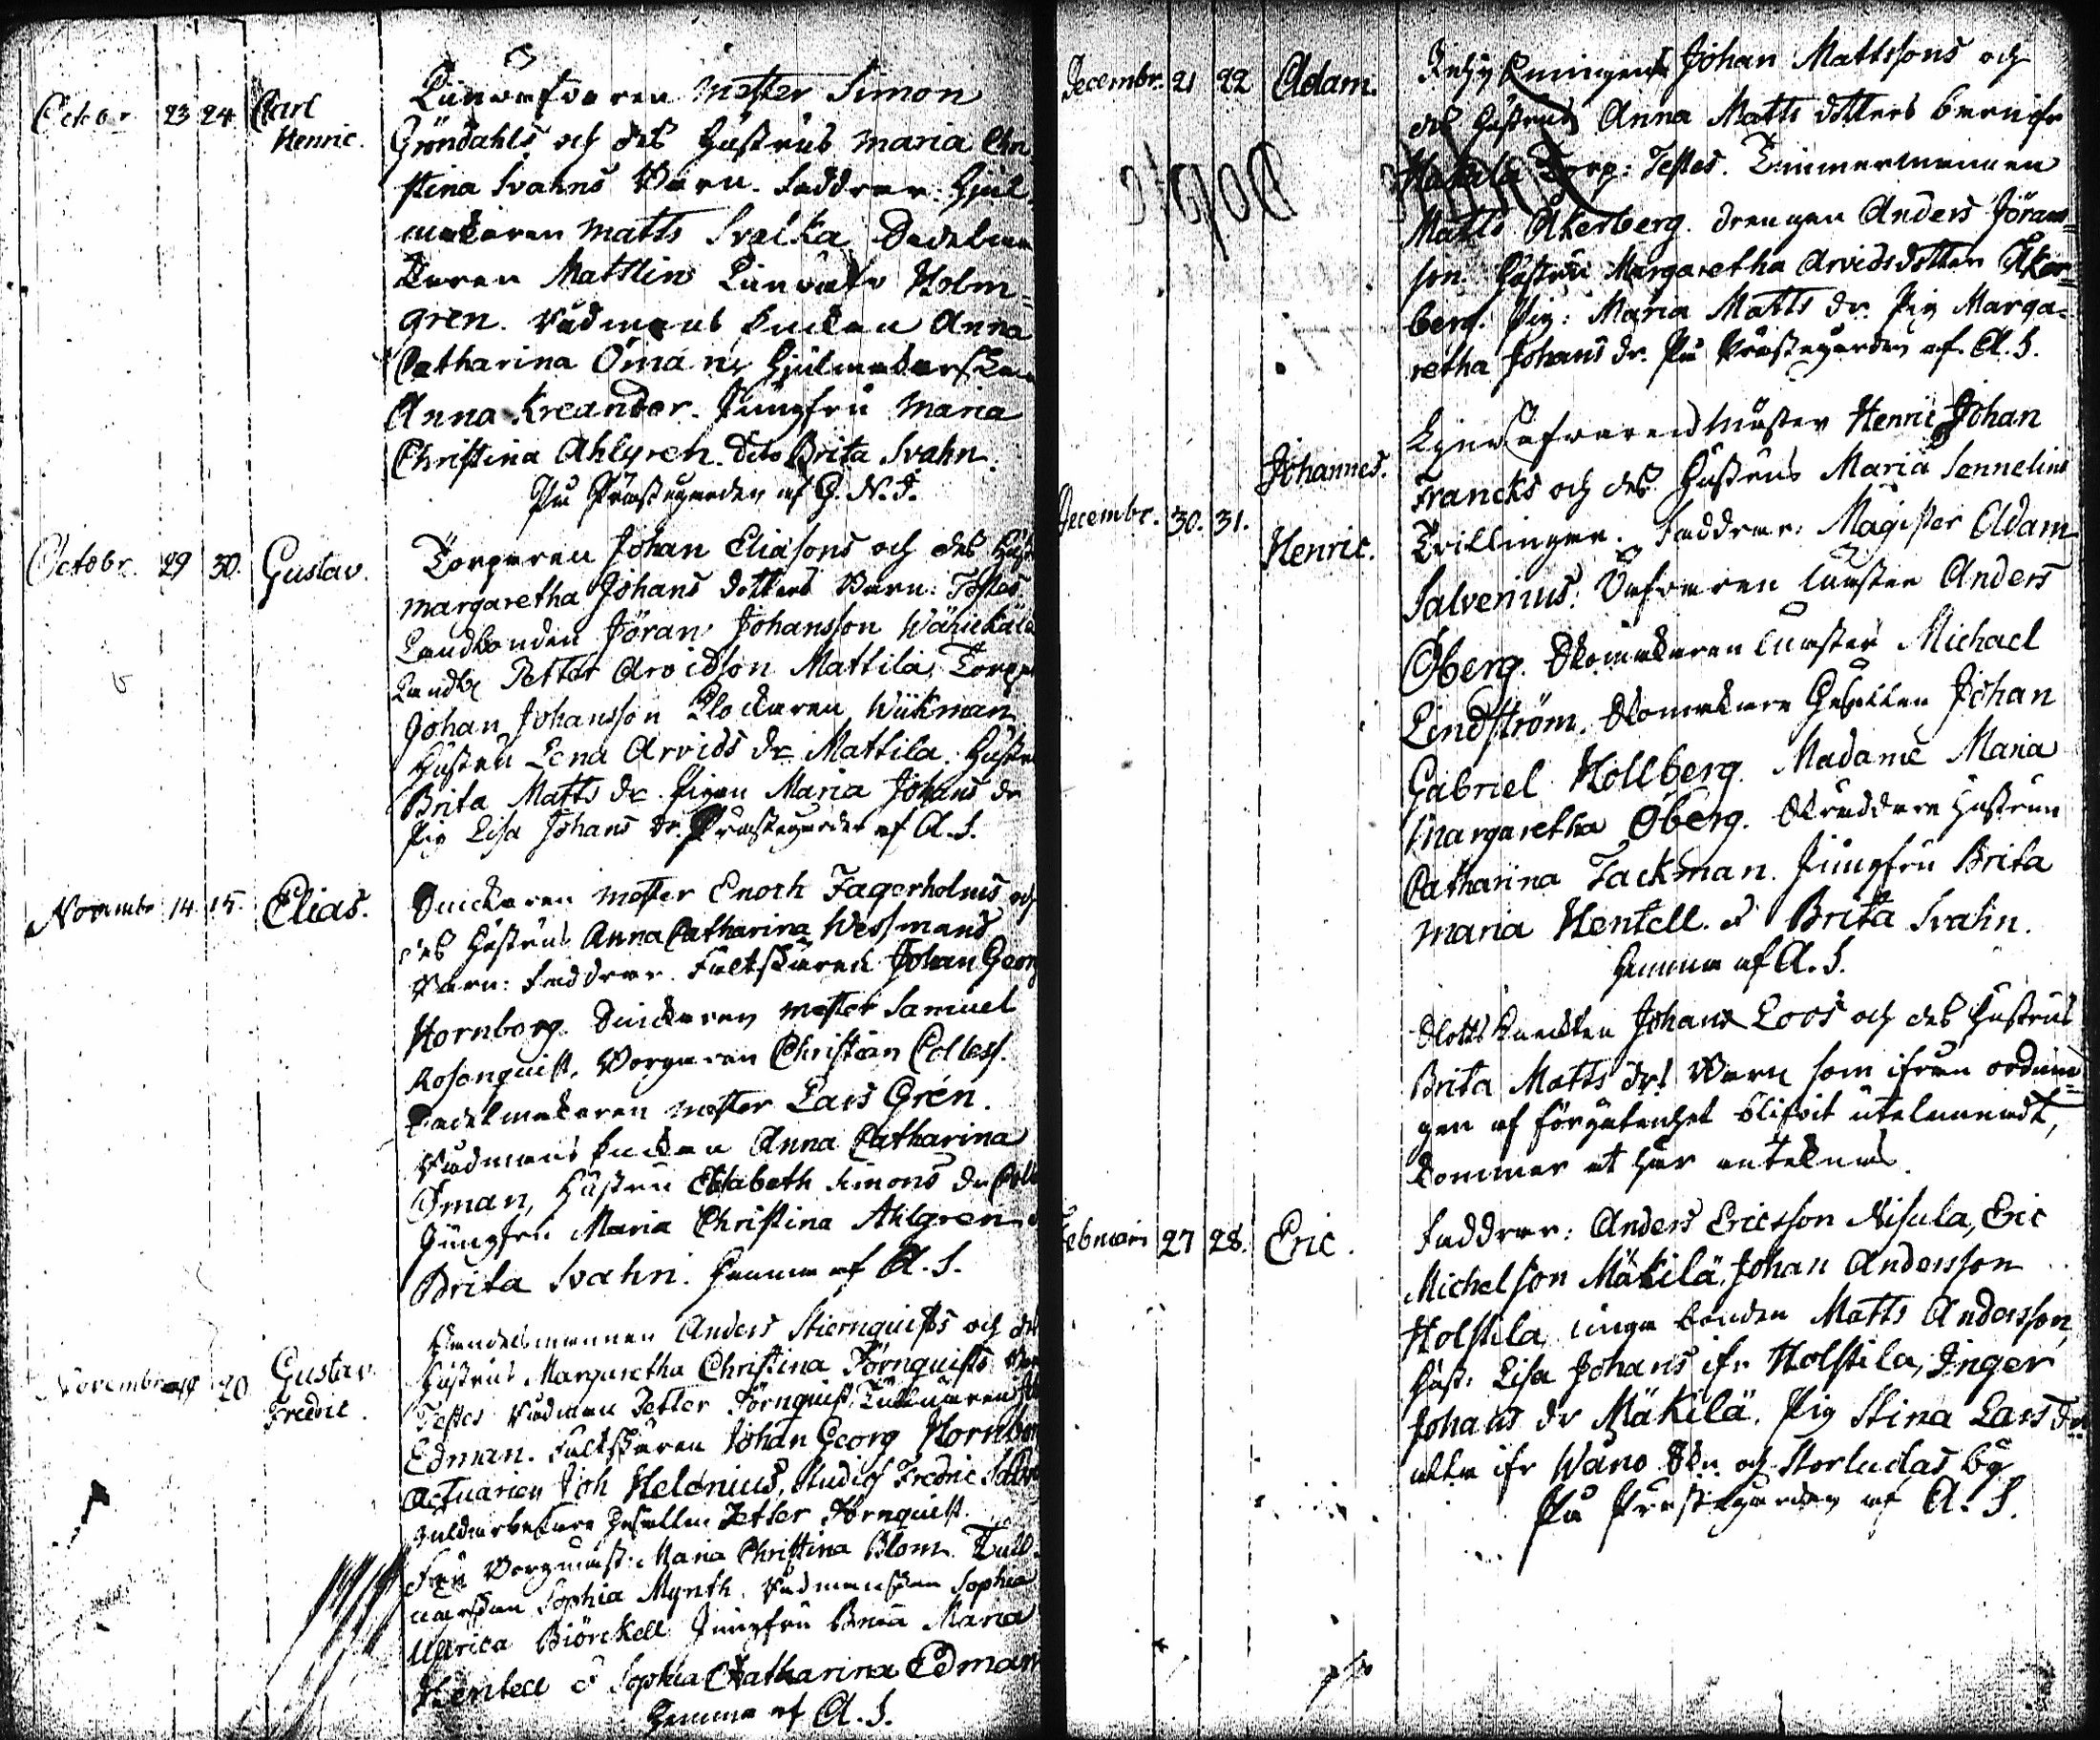 Octobr. 23 24 Carl Henric. Linväfvaren Mäster Simon
Gröndahls och des Hustrus Maria Chri
stina Svahns Barn. Faddrar: Hjul
makaren Matts Svalka Sadelma
karen Mattlin Linväfv Holm=
gren. Rådmans Enckan Anna
Catharina Öman, Hjulmakarskan
Anna Kreander. Jungfru Maria
Christina Ahlgren. dito Brita Svahn.
På Prästegården af G. N. I.
Octobr. 29 30. Gustav. Torparen Johan Eliasons och des Hust
Margaretha Johans dotters Barn: Testes
Landbonden Jöran Johansson
Landb Petter Arvidson Mattila, Torpar
Johan Johansson Klockaren Wikman
Hustru Lena Arvids dr Mattila. Hustru
Brita Matts dr. Pigan Maria Johans dr
Pig Lisa Johans dr. Prästegården af A. S.
Novembr 14. 15. Elias. Snickaren Mäster Enoch Fagerholms och
des Hustrus Anna Catharina Wessmans
Barn: Faddrar. Fältskären Johan Georg
Hornborg. Snickaren Mäster Samuel
Rosenquist. Borgaren Christian Colless.
Sadelmakaren Mäster Lars Grén.
Rådmans Enckan Anna Catharina
Öman, Hustru Elisabeth Simons dr Coll
Jungfru Maria Christina Ahlgren d
Brita Svahn. Hemma af A. S.
Novembr 19 20 Gustav Fredric. Handelsmannen Anders Stiernquists och des
Hustrus Margaretha Christina Törnquists Bar
Testes Rådman Petter Törnquist. Tullnären
Edman. Fältskären Johan Georg Hornborg
Actuarien Joh Helenius, Studios Fredric Salve
Guldarbetare Gesällen Petter Törnquist.
Fru Borgmäst: Maria Christina Blom. Tull
närskan Sophia Mynth. Rådmanskan Sophia
Ulirica Biörckell Jungfru Brita Maria
Hentell d Sophia Catharina Edman
Hemma af A. S.
Decembr. 21 22 Adam. Johan Mattssons och
des Hustrus Anna Matts dotters barn ifr
Torp: Testes. Timmermannen
Matts Åkerberg. drengen Anders Jörans=
son. Hustru Margaretha Arvidsdotter Åker=
berg. Pig: Maria Matts dr. Pig Marga=
retha Johans dr. På Prästegården af A. S.
Decembr. 30. 31. Johannes. Henric. Linväfvaren Mäster Henric Johan
Francks och des Hustrus Maria Sennelius
Tvillingar. Faddrar: Magister Adam
Salvenius: Väfvaren Mäster Anders
Öberg. Skomakaren Mäster Michael
Lindström. Skomakare Gesällen Johan
Gabriel Hollberg. Madame Maria
Margaretha Öberg. Skräddare Hustrun
Catharina Tackman. Jungfru Brita
Maria Hentell. d Brita Svahn.
Hemma af A. S.
Slotts Knekten Johans Loos och des Hustrus
Brita Matts dr! Barn som ifrån ordnin=
gen af förgätenhet blifvit utelemnadt,
kommer at här antecknas.
Februari 27 28. Eric. Faddrar: Anders Ericsson Nisula, Eric
Michelson Mäkilä, Johan Andersson
Holstila, unga bonden Matts Andersson,
Hust: Lisa Johans ifr Holstila, Inger
Johans dr Mäkilä. Pig Stina Lars dr
alla ifr Wano Skn och Storludas by
På Prästegården af A. S.